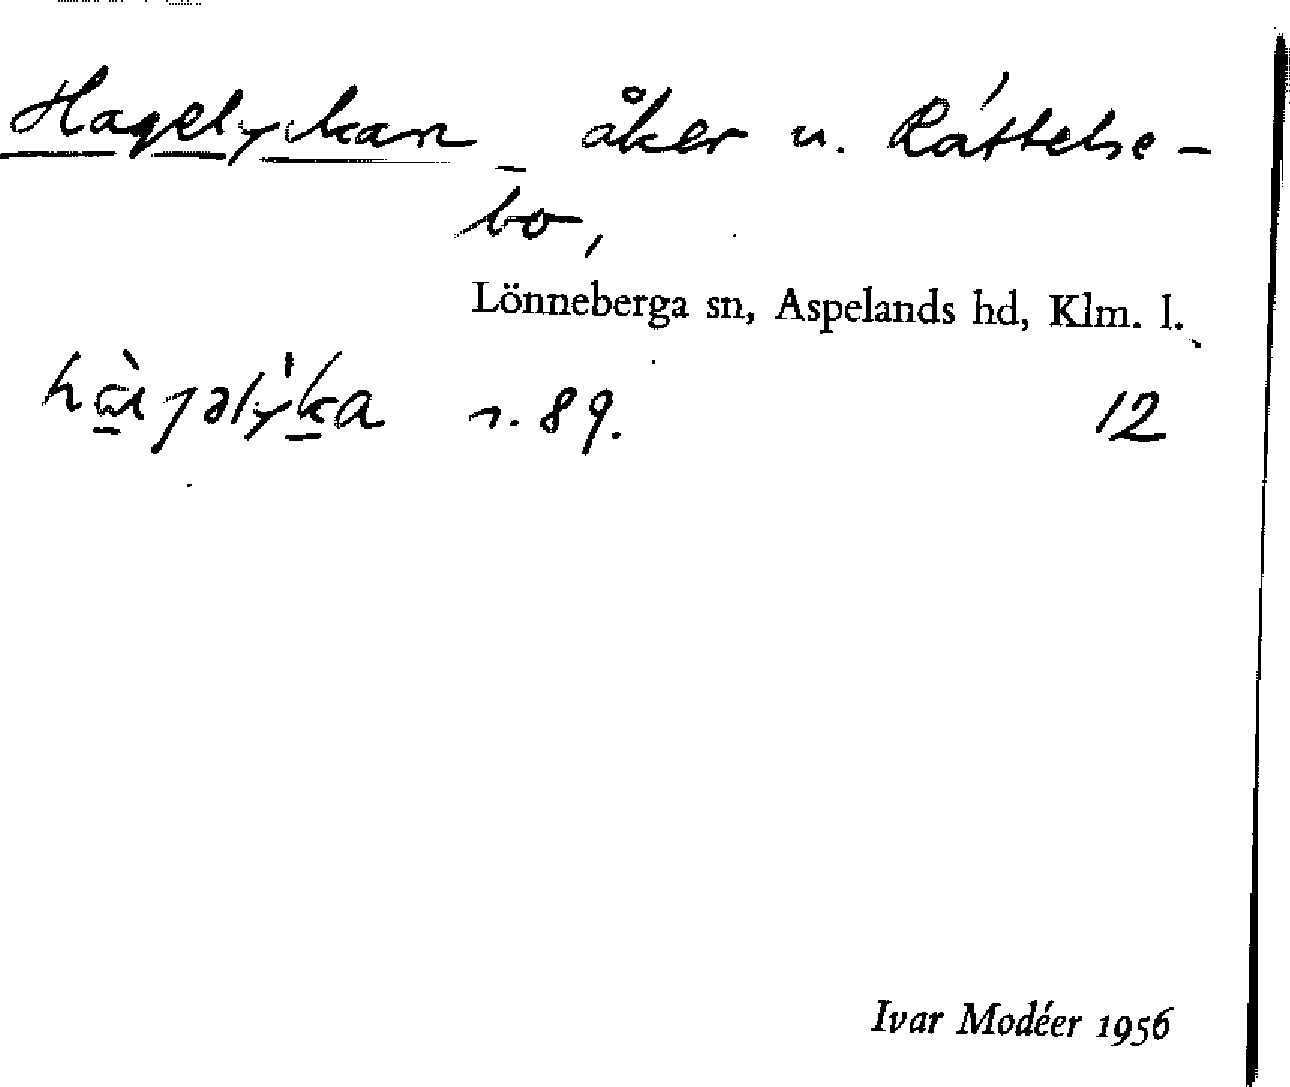 Hagelyckan åker u. Råttelse-
bo,
Lönneberga sn, Aspelands hd, Klm. l.
n. 89. 12
Ivar Modéer 1956